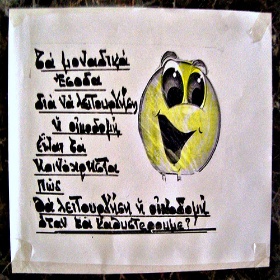 Τά μοναδικά
Έσοδα
διά νά λειτουργήση
ή οικοδομή
Είναι τά
Κοινόχρηστα
Πώς
Θά λειτουργήση ή οικοδομή
όταν τά καθυστερούμε??